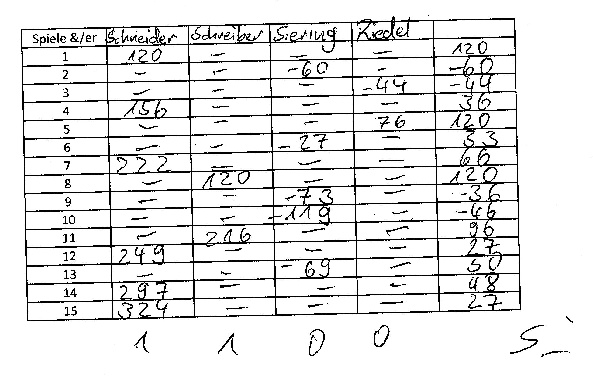 Spiele &/er Schneider Schreiber Siering Riedel
1 120 – – – 120
2 – – -60 – -60
3 – – – -44 -44
4 156 – – – 36
5 – – – 76 120
6 – – -27 – 33
7 222 – – – 66
8 – 120 – – 120
9 – – -73 – -36
10 – – -119 – -46
11 – 216 – – 96
12 249 – – – 27
13 – – -69 – 50
14 297 – – – 48
15 324 – – – 27
1 1 0 0